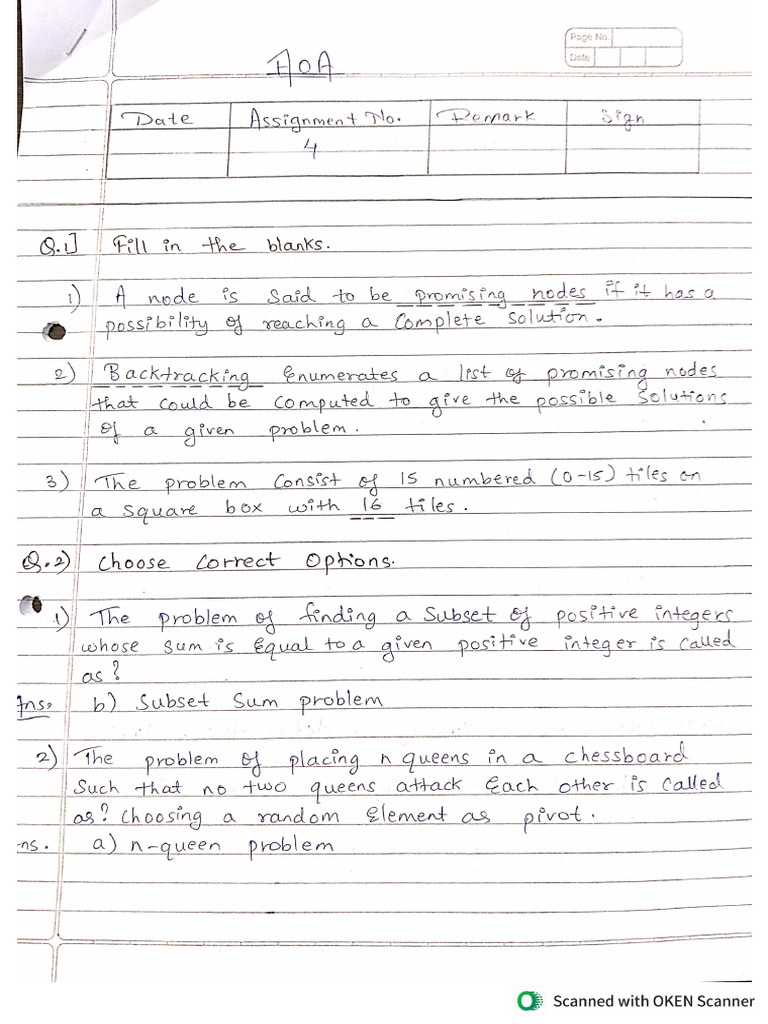 Page No.
Date
AOA
Date Assignment No. Remark Sign
4
Q.1] Fill in the blanks.
1) A node is said to be promising nodes if it has a
possibility of reaching a complete solution.
2) Backtracking Enumerates a list of promising nodes
that could be computed to give the possible solutions
of a given problem.
3) The problem consist of 15 numbered (0-15) tiles on
a square box with 16 tiles.
Q.2) Choose Correct Options.
1) The problem of finding a subset of positive integers
whose sum is Equal to a given positive integer is called
as?
Ans. b) Subset Sum problem
2) The problem of placing n queens in a chessboard
Such that no two queens attack Each other is called
as? Choosing a random Element as pivot.
ns. a) n-queen problem
Scanned with OKEN Scanner